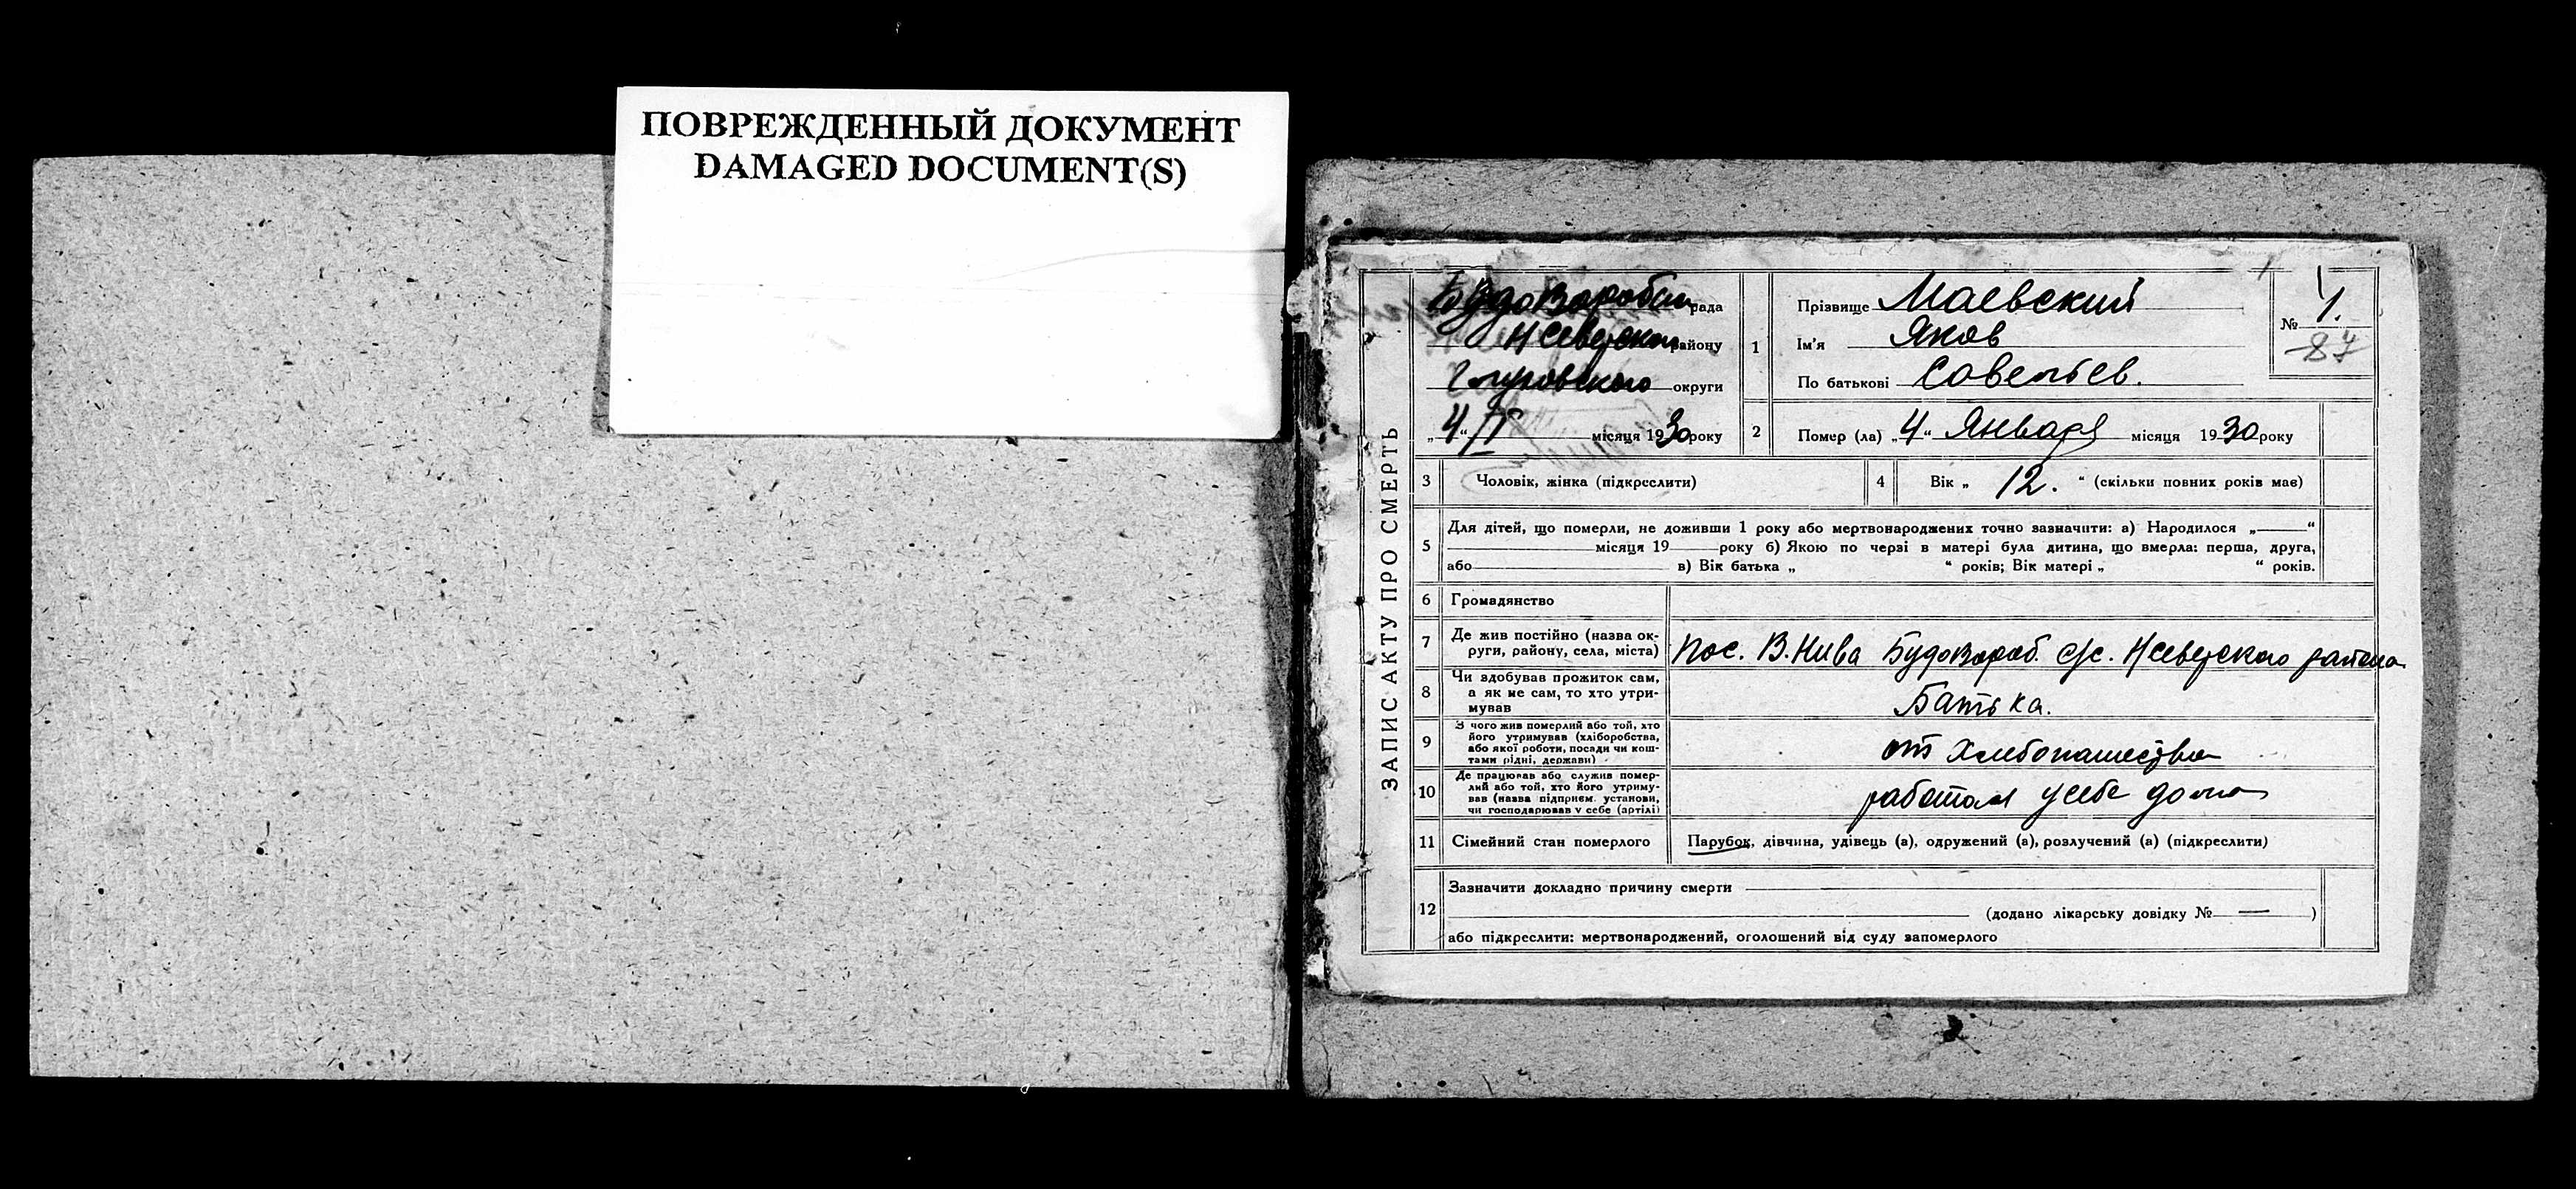 ПОВРЕЖДЕННЫЙ ДОКУМЕНТ
DAMAGED DOCUMENT(S)
ЗАПИС АКТУ ПРО СМЕРТЬ
рада
Нсеверского району
Глуховского округи
„4“ I місяця 1930 року
1
Прізвище Маевский
Ім'я Яков
По батькові Савельев.
№ 1.
87
2 Помер (ла) „4“ Января місяця 1930 року
3 Чоловік, жінка (підкреслити)
4 Вік „ 12. “ (скільки повних років має)
5 Для дітей, що померли, не доживши 1 року або мертвонароджених точно зазначити: а) Народилося „ “
місяця 19 року б) Якою по черзі в матері була дитина, що вмерла: перша, друга,
або в) Вік батька „ “ років; Вік матері „ “ років.
6 Громадянство
7 Де жив постійно (назва ок-
руги, району, села, міста)
пос. В. Нива Будовороб. с/с. Нсеверского района
8 Чи здобував прожиток сам,
а як не сам, то хто утри-
мував
Батька.
9 З чого жив померлий або той, хто
його утримував (хліборобства,
або якої роботи, посади чи кош-
тами рідні, держави)
от хлебопашества
10 Де працював або служив помер-
лий або той, хто його утриму-
вав (назва підприєм. установи,
чи господарював у себе (артілі)
работал у себе дома
11 Сімейний стан померлого
Парубок, дівчина, удівець (а), одружений (а), розлучений (а) (підкреслити)
12 Зазначити докладно причину смерти
(додано лікарську довідку № — )
або підкреслити: мертвонароджений, оголошений від суду запомерлого